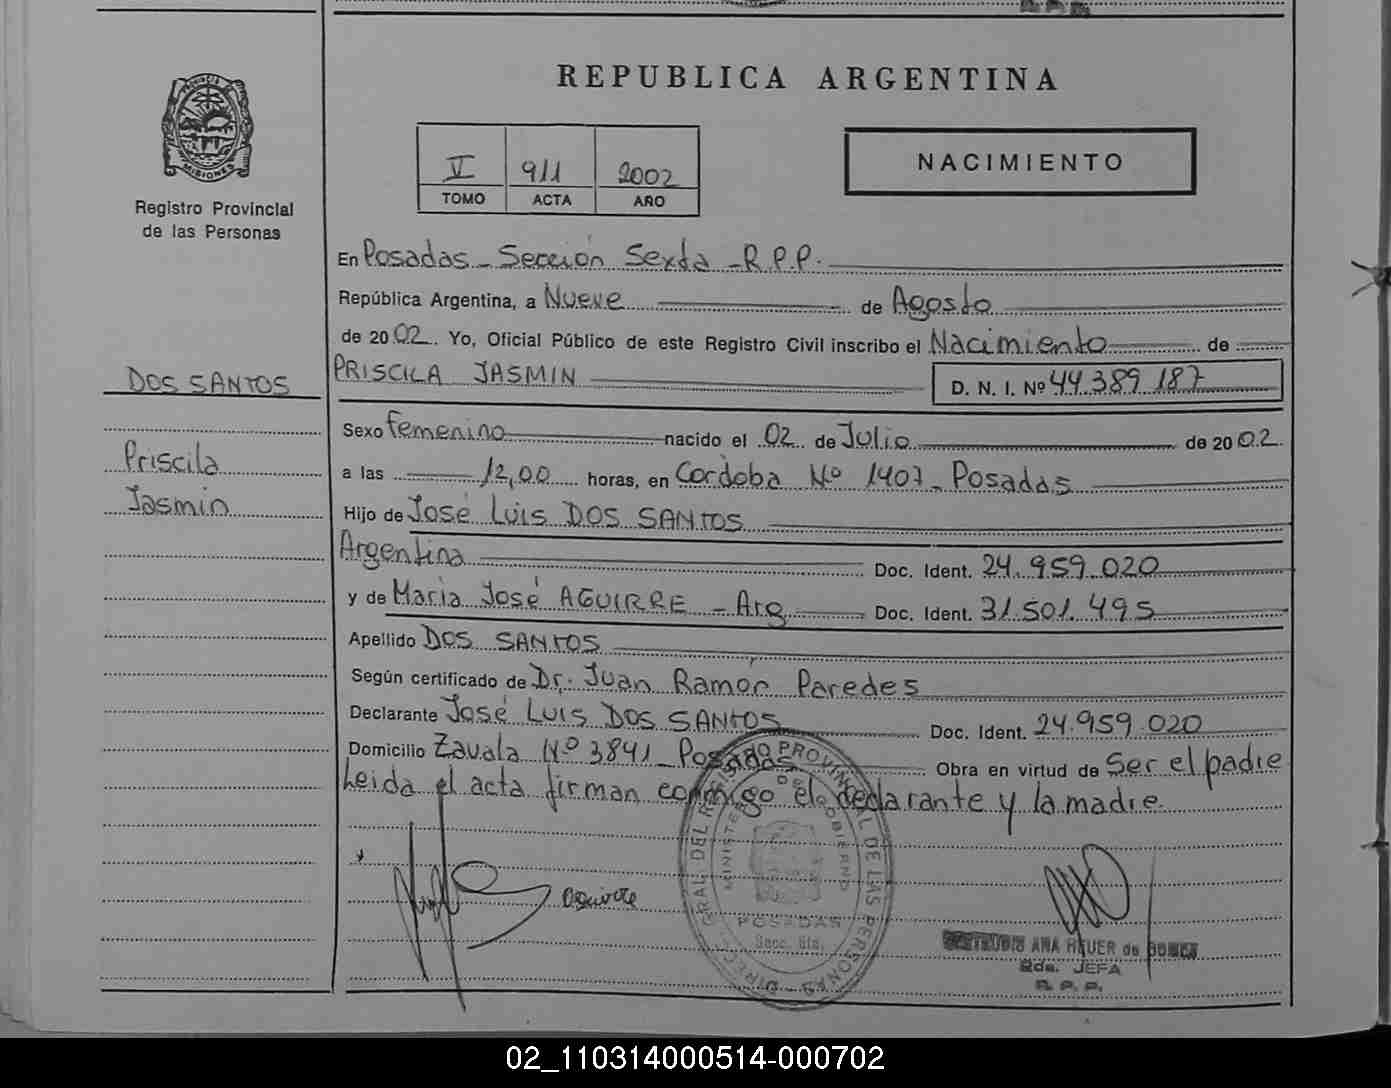 REPUBLICA ARGENTINA
PROVINCIA DE MISIONES
Registro Provincial
de las Personas
V 911 2002
TOMO ACTA AÑO
NACIMIENTO
En Posadas - Sección Sexta - R.P.P.
República Argentina, a Nueve de Agosto
de 2002. Yo, Oficial Público de este Registro Civil inscribo el Nacimiento de
PRISCILA JASMIN D. N. I. Nº 44.389.187
DOS SANTOS
Priscila
Jasmin
Sexo Femenino nacido el 02 de Julio de 2002.
a las 12,00 horas, en Cordoba Nº 1407 - Posadas
Hijo de José Luis DOS SANTOS
Argentina Doc. Ident. 24.959.020
y de Maria José AGUIRRE - Arg Doc. Ident. 31.501.495
Apellido DOS SANTOS
Según certificado de Dr. Juan Ramón Paredes
Declarante José Luis DOS SANTOS Doc. Ident. 24.959.020
Domicilio Zavala Nº 3841 - Posadas Obra en virtud de Ser el padre
Leida el acta firman conmigo el declarante y la madre.
DIREC. GRAL. DEL REGISTRO PROVINCIAL DE LAS PERSONAS
MINISTERIO DE GOBIERNO
POSADAS
Secc. 6ta.
ANA HEUER de
Rda. JEFA
R. P. P.
02_110314000514-000702